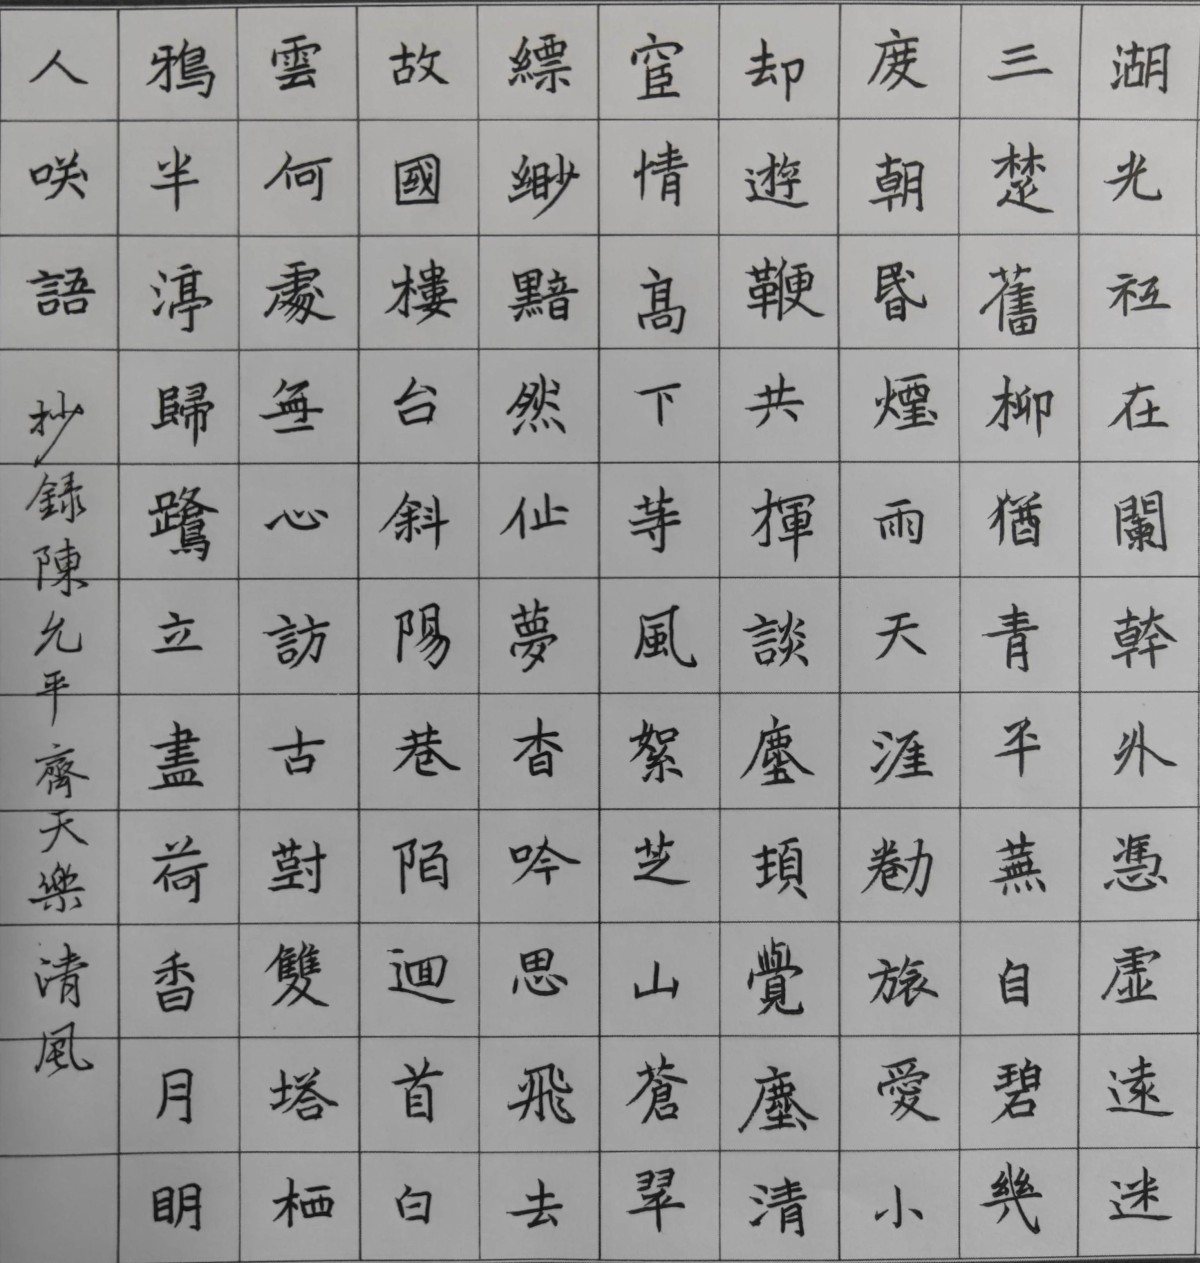 湖光祇在闌幹外憑虛遠迷
三楚舊柳猶青平蕪自碧幾
度朝昏煙雨天涯勌旅愛小
却遊鞭共揮談麈頓覺塵清
宦情高下等風絮芝山蒼翠
縹緲黯然仙夢杳吟思飛去
故國樓台斜陽巷陌迴首白
雲何處無心訪古對雙塔栖
鴉半渟歸鷺立盡荷香月明
人咲語
抄録陳允平齊天樂清風